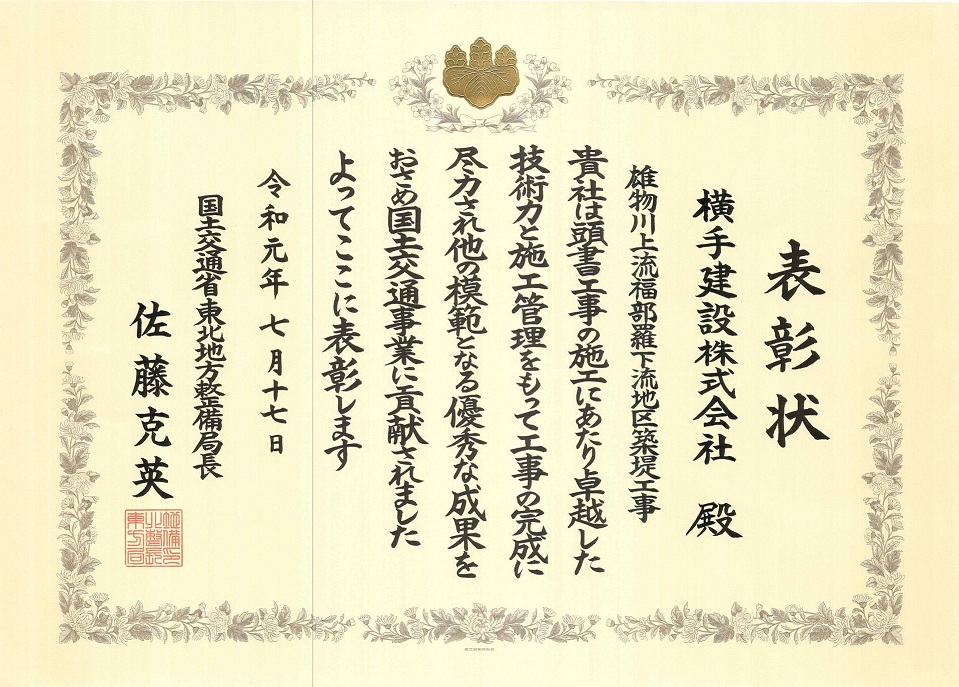 表彰状
横手建設株式会社 殿
雄物川上流福部羅下流地区築堤工事
貴社は頭書工事の施工にあたり卓越した
技術力と施工管理をもって工事の完成に
尽力され他の模範となる優秀な成果を
おさめ国土交通事業に貢献されました
よってここに表彰します
令和元年 七月十七日
国土交通省東北地方整備局長
佐藤克英